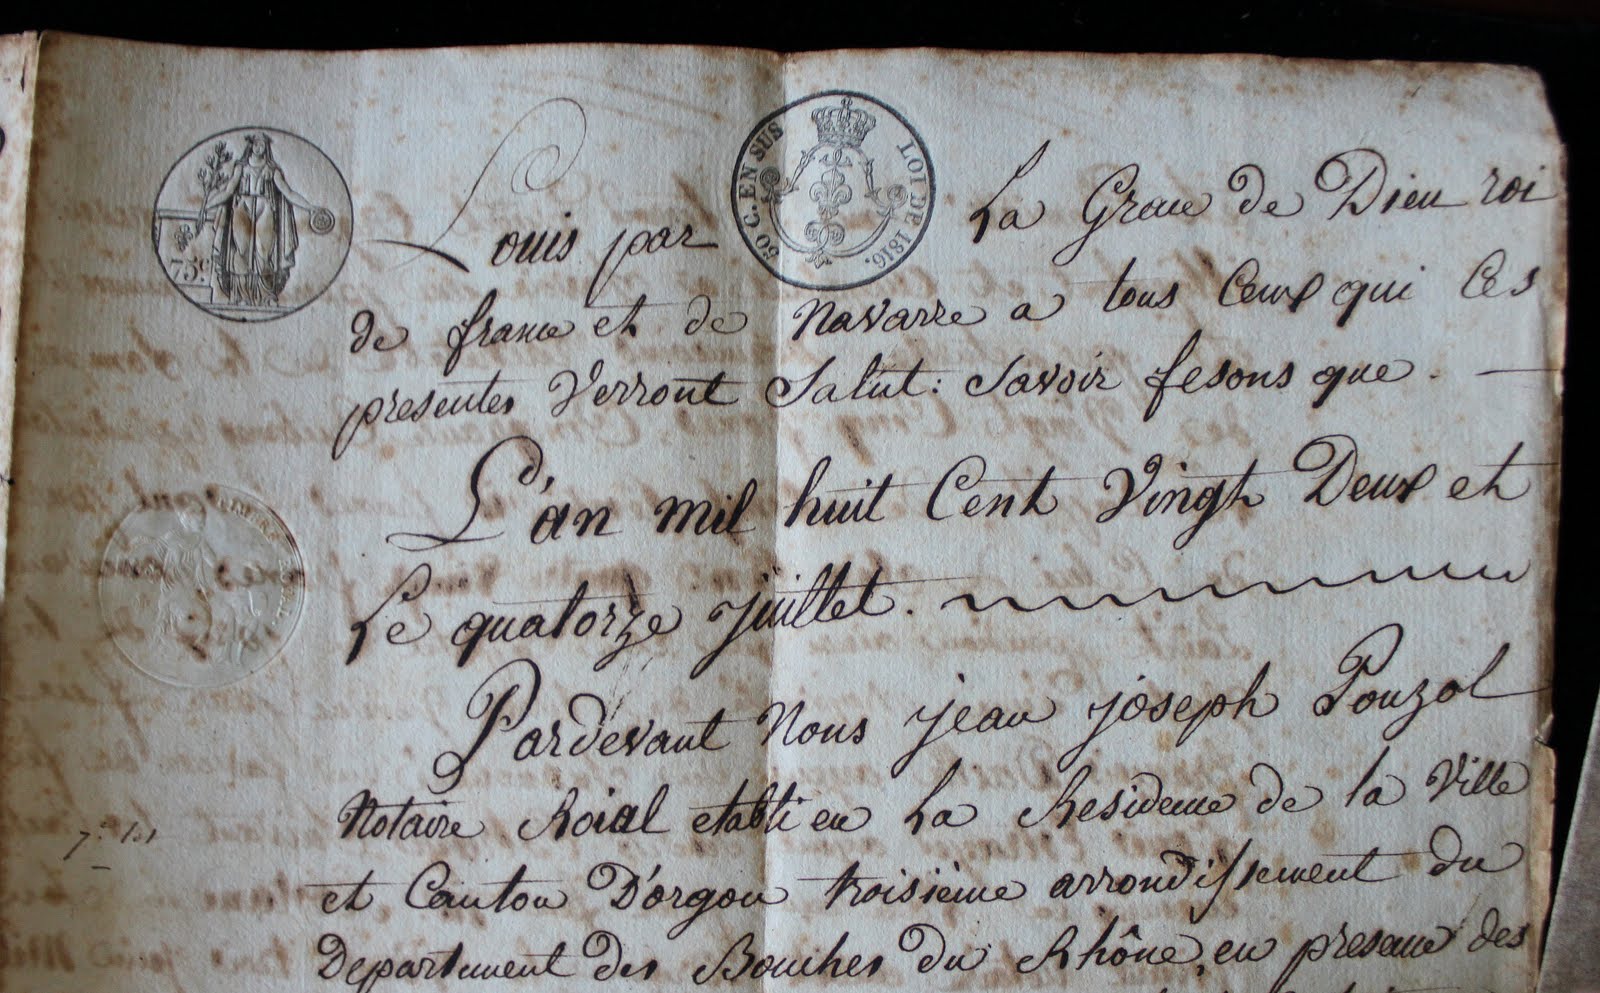 75 c.
50 C. EN SUS LOI DE 1816.
Louis par La Grace de Dieu roi
de france et de Navarre a tous Ceux qui Ces
presentes Verront Salut: Savoir fesons que.
L'an mil huit Cent Vingt Deux et
Le quatorze juillet.
Pardevant Nous jean joseph Pouzol
Notaire Roial etabli en La Residence de la Ville
et Canton D'orgon troisième arrondissement du
Departement des Bouches du Rhône, en presence des